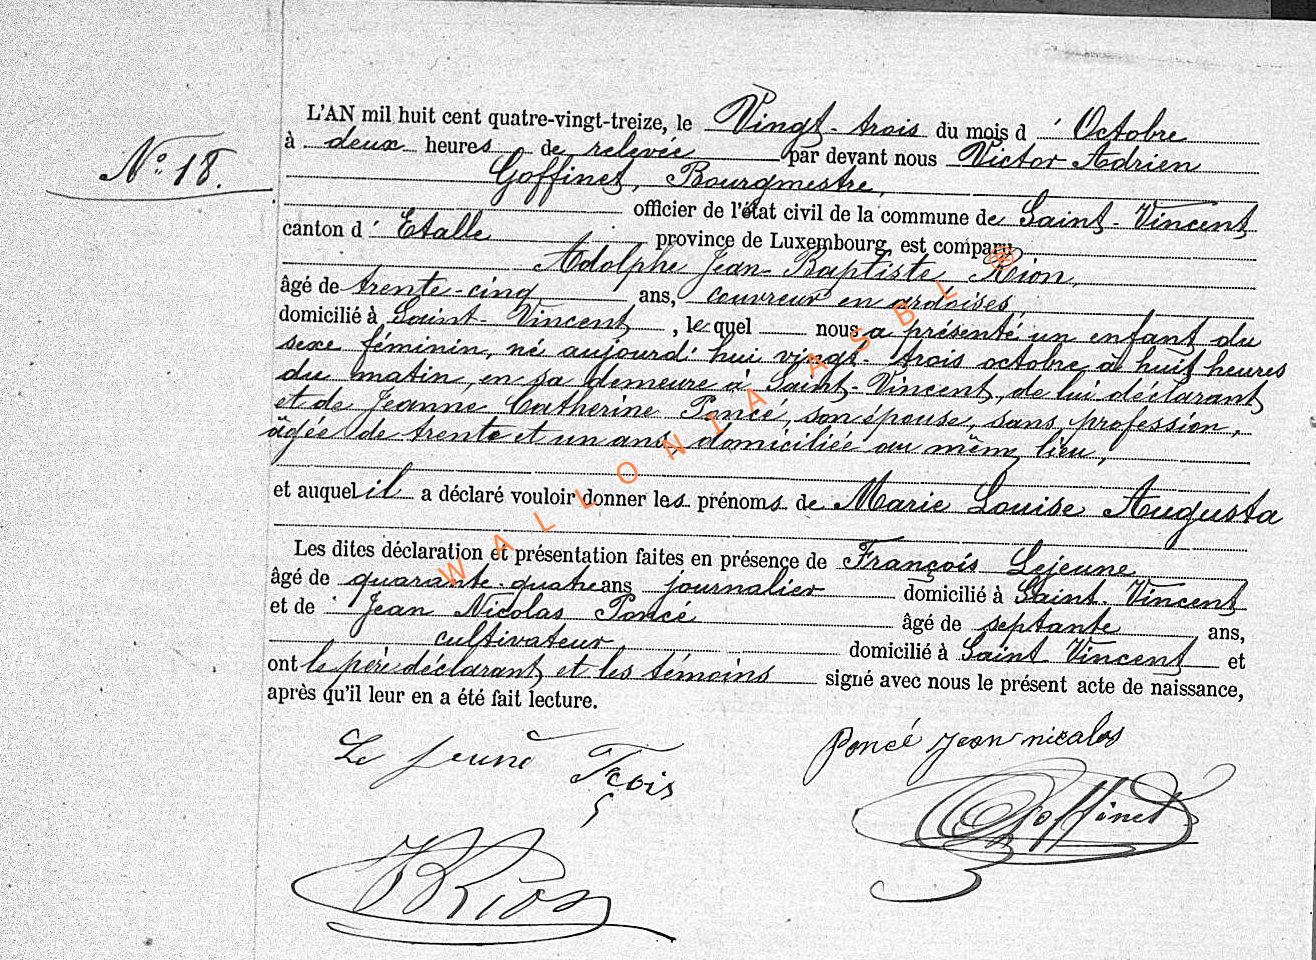 L'AN mil huit cent quatre-vingt-treize, le Vingt-trois du mois d' Octobre
N° 18.
à deux heures de relevée par devant nous Victor Adrien
Goffinet, Bourgmestre,
officier de l'état civil de la commune de Saint-Vincent
canton d' Etalle province de Luxembourg, est comparu
Adolphe Jean-Baptiste Rion,
âgé de trente-cinq ans, couvreur en ardoises
domicilié à Saint-Vincent, lequel nous a présenté un enfant du
sexe féminin, né aujourd'hui vingt-trois octobre à huit heures
du matin, en sa demeure à Saint-Vincent, de lui déclarant
et de Jeanne Catherine Poncé, son épouse, sans profession,
âgée de trente et un ans, domiciliée au même lieu,
et auquel il a déclaré vouloir donner les prénoms de Marie Louise Augusta
Les dites déclaration et présentation faites en présence de François Lejeune
âgé de quarante-quatre ans journalier domicilié à Saint-Vincent
et de Jean Nicolas Poncé âgé de septante ans,
cultivateur domicilié à Saint Vincent et
ont le père déclarant et les témoins signé avec nous le présent acte de naissance,
après qu'il leur en a été fait lecture.
Le jeune Fcois
poncé jean nicolas
Goffinet
Rion
WALLONIA ASBL